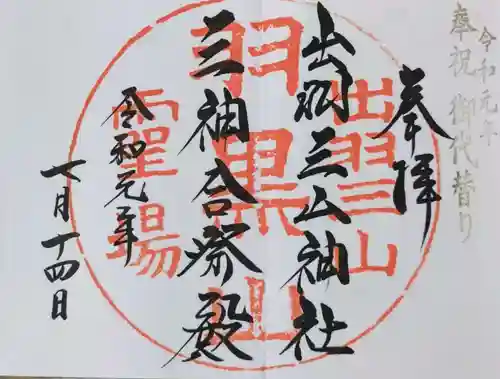 令和元年
奉祝 御代替り
奉拝
出羽三山
出羽三山神社
羽黒山
三神合祭殿
霊場
令和元年
七月十四日